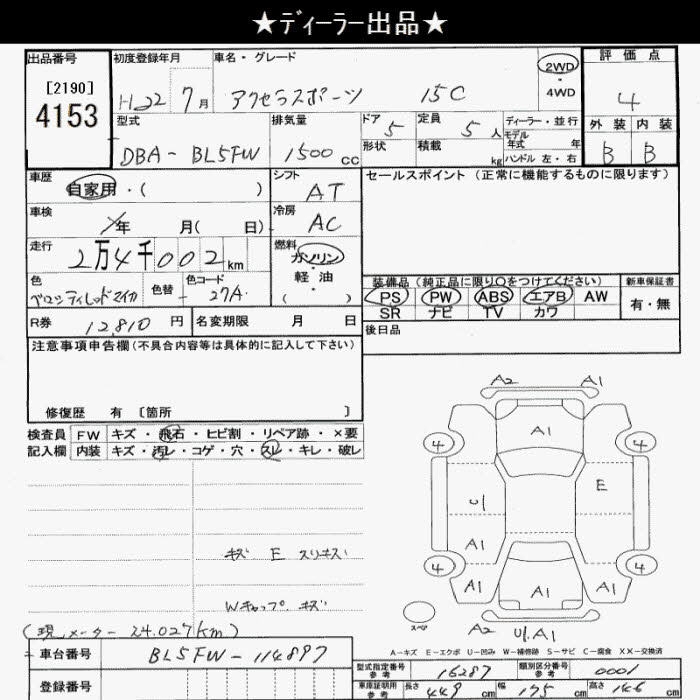 ★ディーラー出品★
出品番号 初度登録年月 車名・グレード 2WD・4WD 評価点
[2190] 4153 H22 7月 アクセラスポーツ 15C 4
型式 排気量 ドア 5 定員 5人 ディーラー・並行 外装 内装
形状 積載 kg モデル年式 年 ハンドル 左・右
DBA-BL5FW 1500cc B B
車歴 自家用・( ) シフト AT セールスポイント (正常に機能するものに限ります)
車検 年 月( 日) 冷房 AC
走行 2万4千002km 燃料 ガソリン・軽油 ( )
色 ベロシティレッドマイカ 色替 色コード 27A
装備品 (純正品に限り○をつけてください) 新車保証書
PS PW ABS エアB AW 有・無
SR ナビ TV カワ
R券 12810円 名変期限 月 日 後日品
注意事項申告欄(不具合内容等は具体的に記入して下さい)
修復歴 有 [箇所 ]
検査員 FW キズ・飛石・ヒビ割・リペア跡・×要
記入欄 内装 キズ・汚レ・コゲ・穴・スレ・キレ・破レ
A2 A1
A1
4 4
U1 E
A1
4 4
A1 A1 A1
キズ E スリキズ
Wキャップ キズ
スペア A2 U1.A1
(現メーター 24.027km)
A-キズ E-エクボ U-凹み W-補修跡 S-サビ C-腐食 XX-交換済
車台番号 BL5FW-114897
型式指定番号 参考 16287 類別区分番号 参考 0001
登録番号 車庫証明用 参考 長さ 449cm 幅 175cm 高さ 146cm